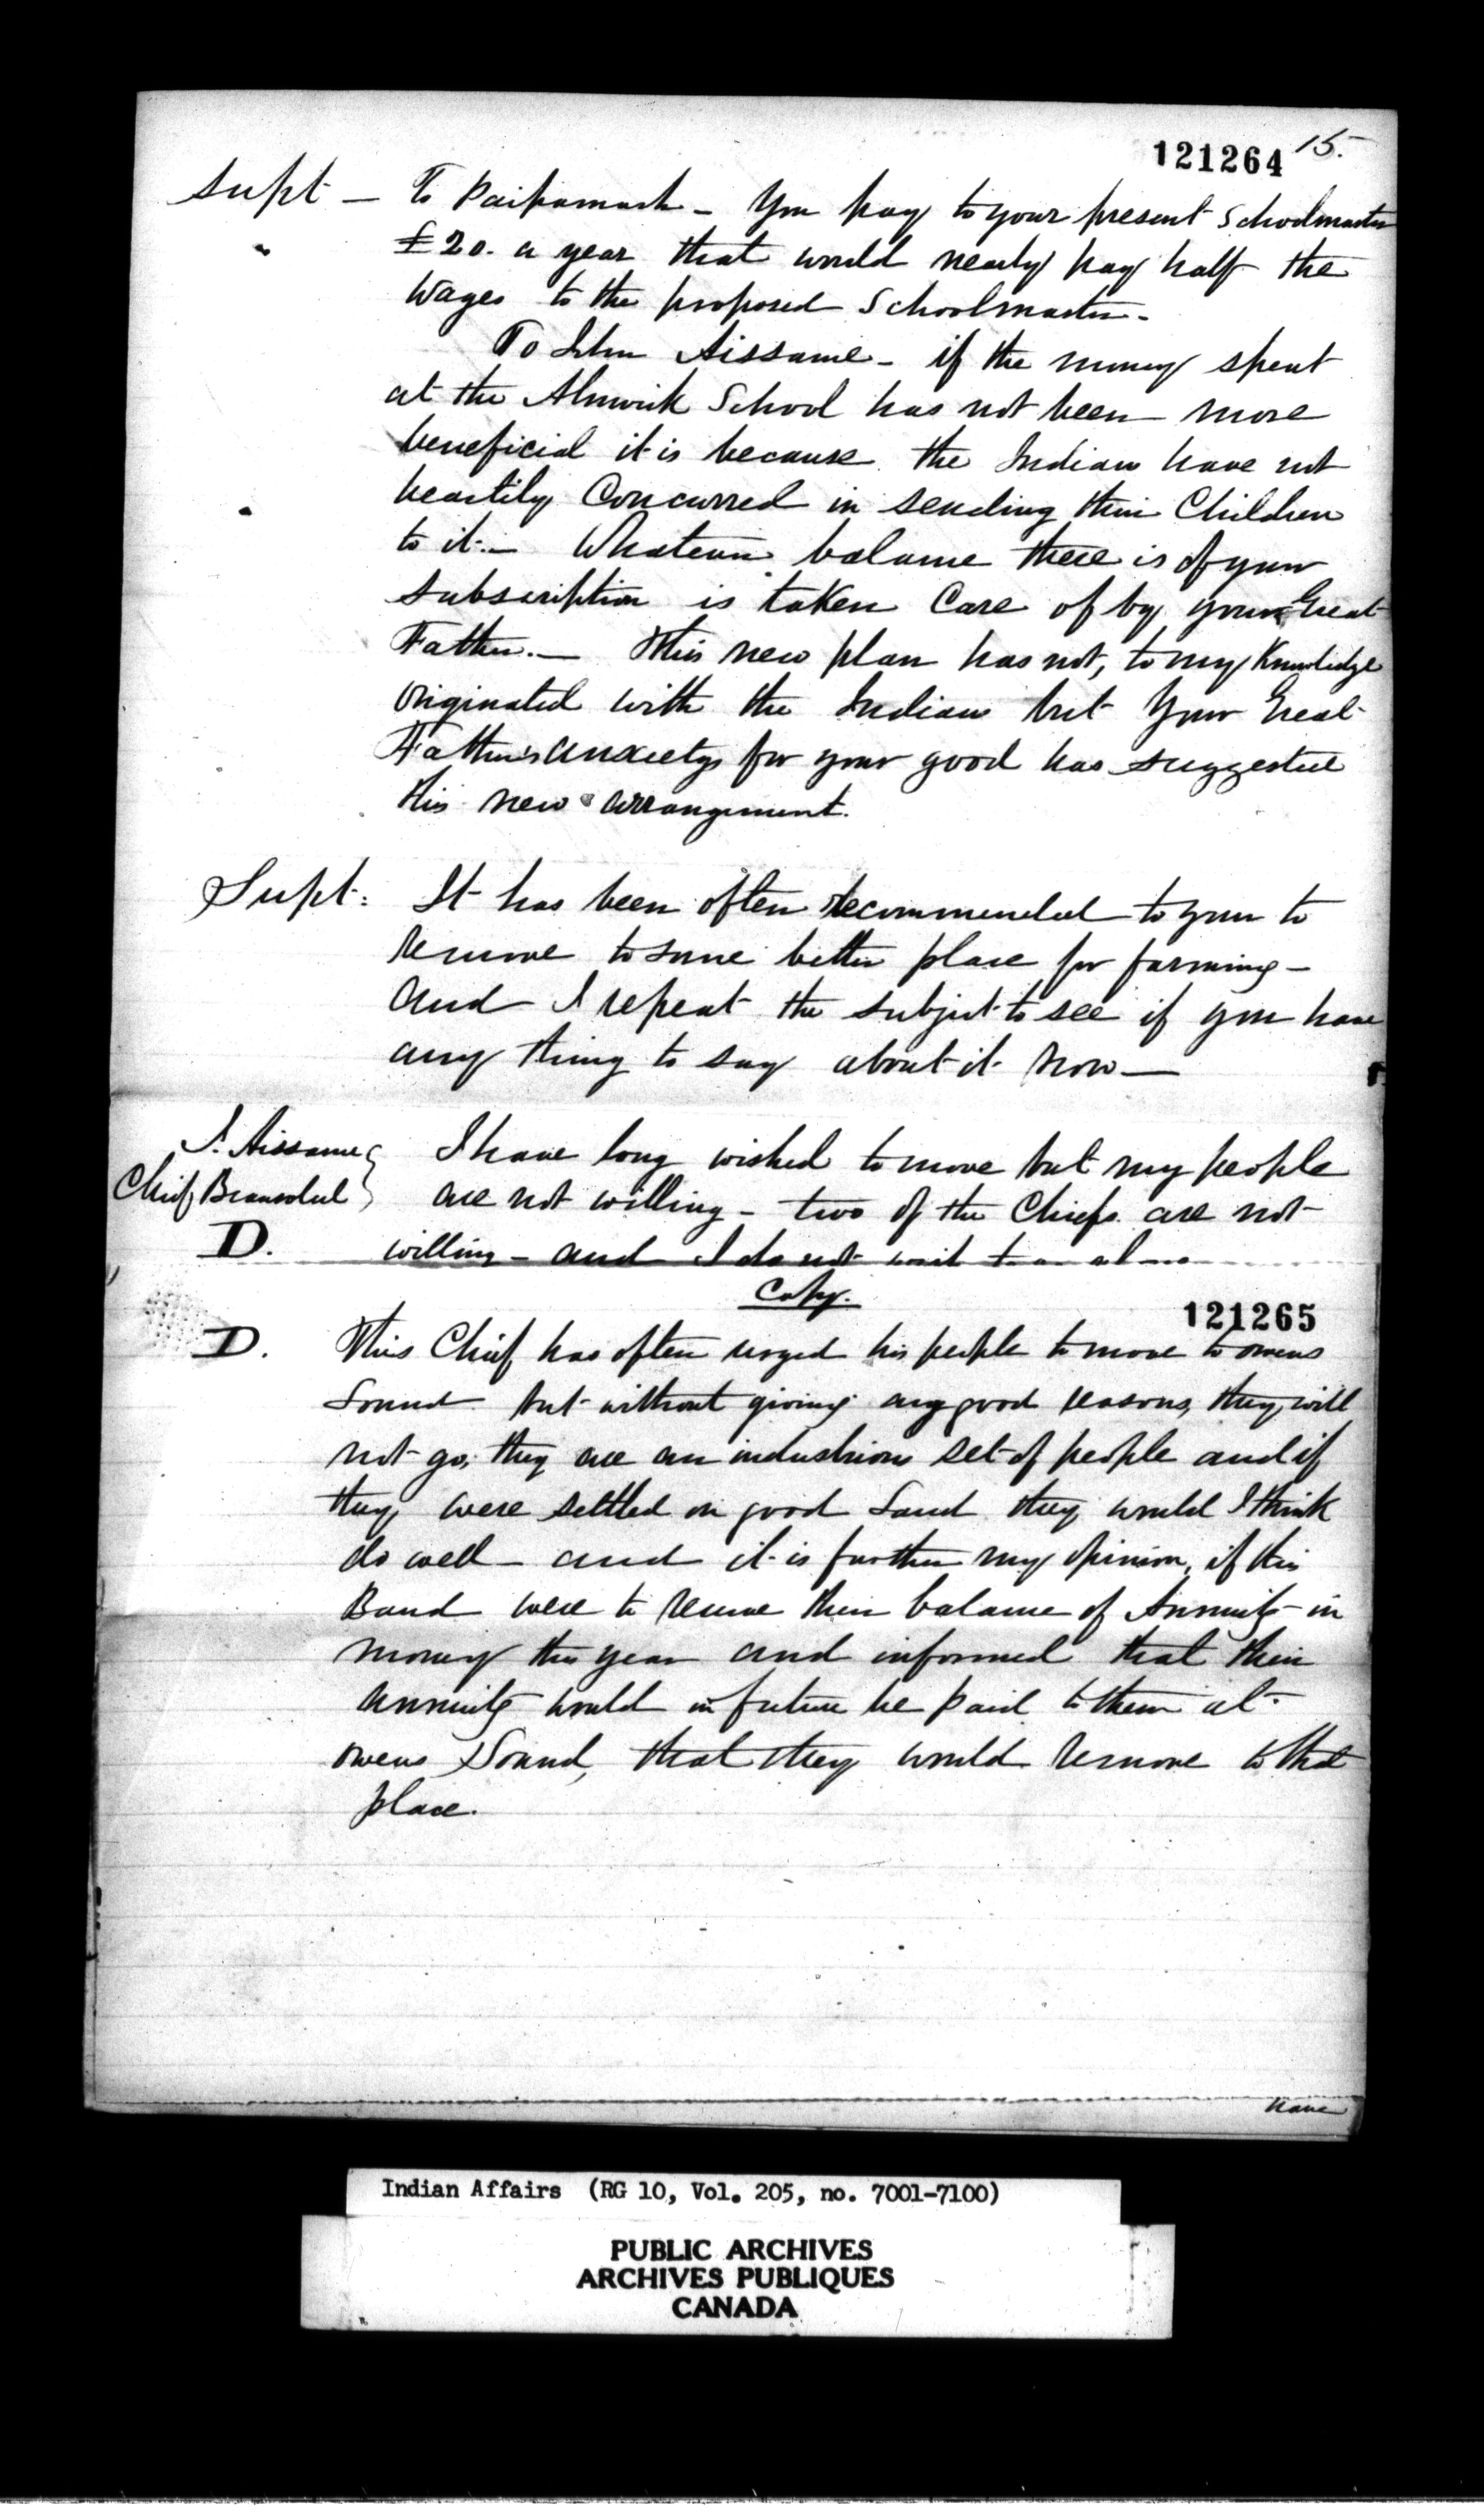 121264 15.
Supt — To Paipamash — You pay to your present Schoolmaster
£20. a year that would nearly pay half the
wages to the proposed Schoolmaster —
To John Aissame — if the money spent
at the Alnwick School has not been more
beneficial it is because the Indians have not
heartily Concurred in sending their Children
to it — Whatever balance there is of your
subscription is taken Care of by your Great
Father. — This new plan has not, to my Knowledge
originated with the Indians but Your Great
Father's anxiety for your good has suggested
this new arrangement.
Supt: It has been often recommended to you to
remove to some better place for farming —
and I repeat the subject to see if you have
any thing to say about it now —
J. Aissame I have long wished to move but my people
Chief Beausoleil are not willing — two of the Chiefs are not
D. willing — and I do not
Copy.
121265
D. This Chief has often urged his people to move to Owens
Sound but without giving any good reasons, they will
not go; they are an industrious set of people and if
they were settled on good Land they would I think
do well — and it is further my opinion, if this
Band were to receive their balance of Annuity in
money this year and informed that their
annuity would in future be paid to them at
Owens Sound, that they would remove to that
place.
have
Indian Affairs (RG 10, Vol. 205, no. 7001-7100)
PUBLIC ARCHIVES
ARCHIVES PUBLIQUES
CANADA